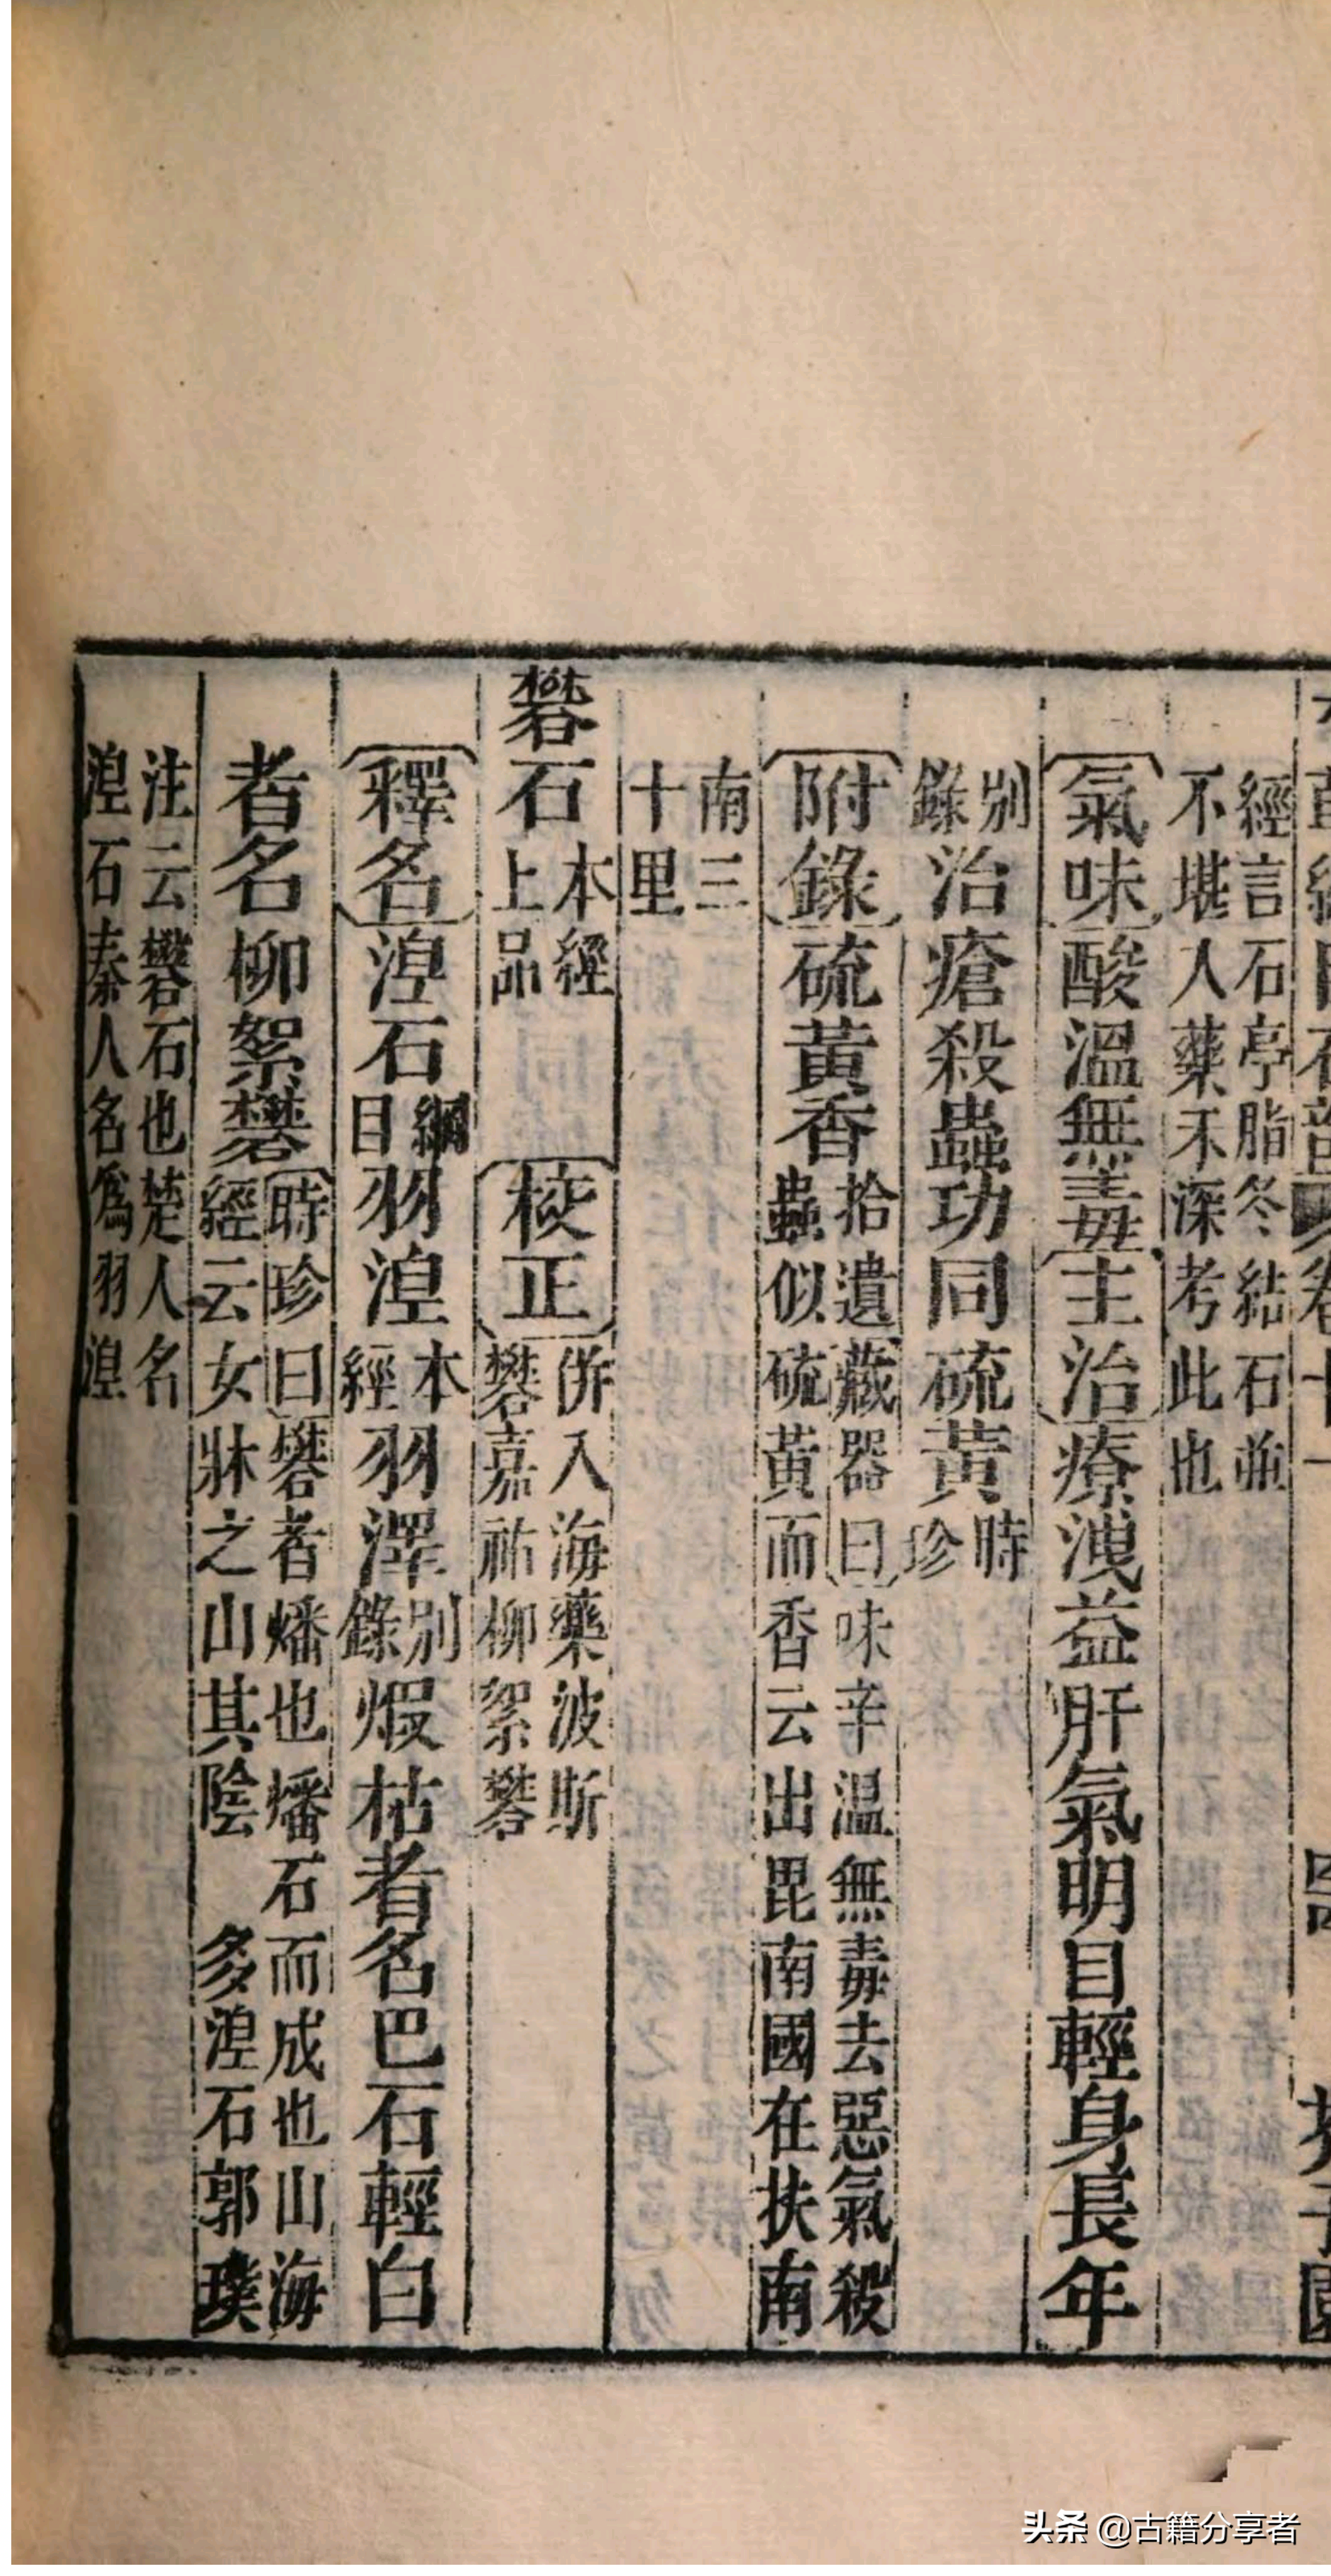 本草綱目石部卷十一 四 芥子園
經言石亭脂冬結石並
不堪人藥禾深考此也
氣味酸溫無毒主治療洩益肝氣明目輕身長年
別錄治瘡殺蟲功同硫黃時珍
附錄硫黃香拾遺藏器曰味辛温無毒去惡氣殺
蟲似硫黃而香云出毘南國在扶南
南三
十里
礬石本經上品 校正併入海藥波斯
礬嘉祐柳絮礬
釋名涅石綱目羽涅本經羽澤別錄煆枯者名巴石輕白
者名柳絮礬時珍曰礬者燔也燔石而成也山海
經云女牀之山其陰 多涅石郭璞
注云礬石也楚人名
涅石秦人名爲羽涅
头条 @古籍分享者